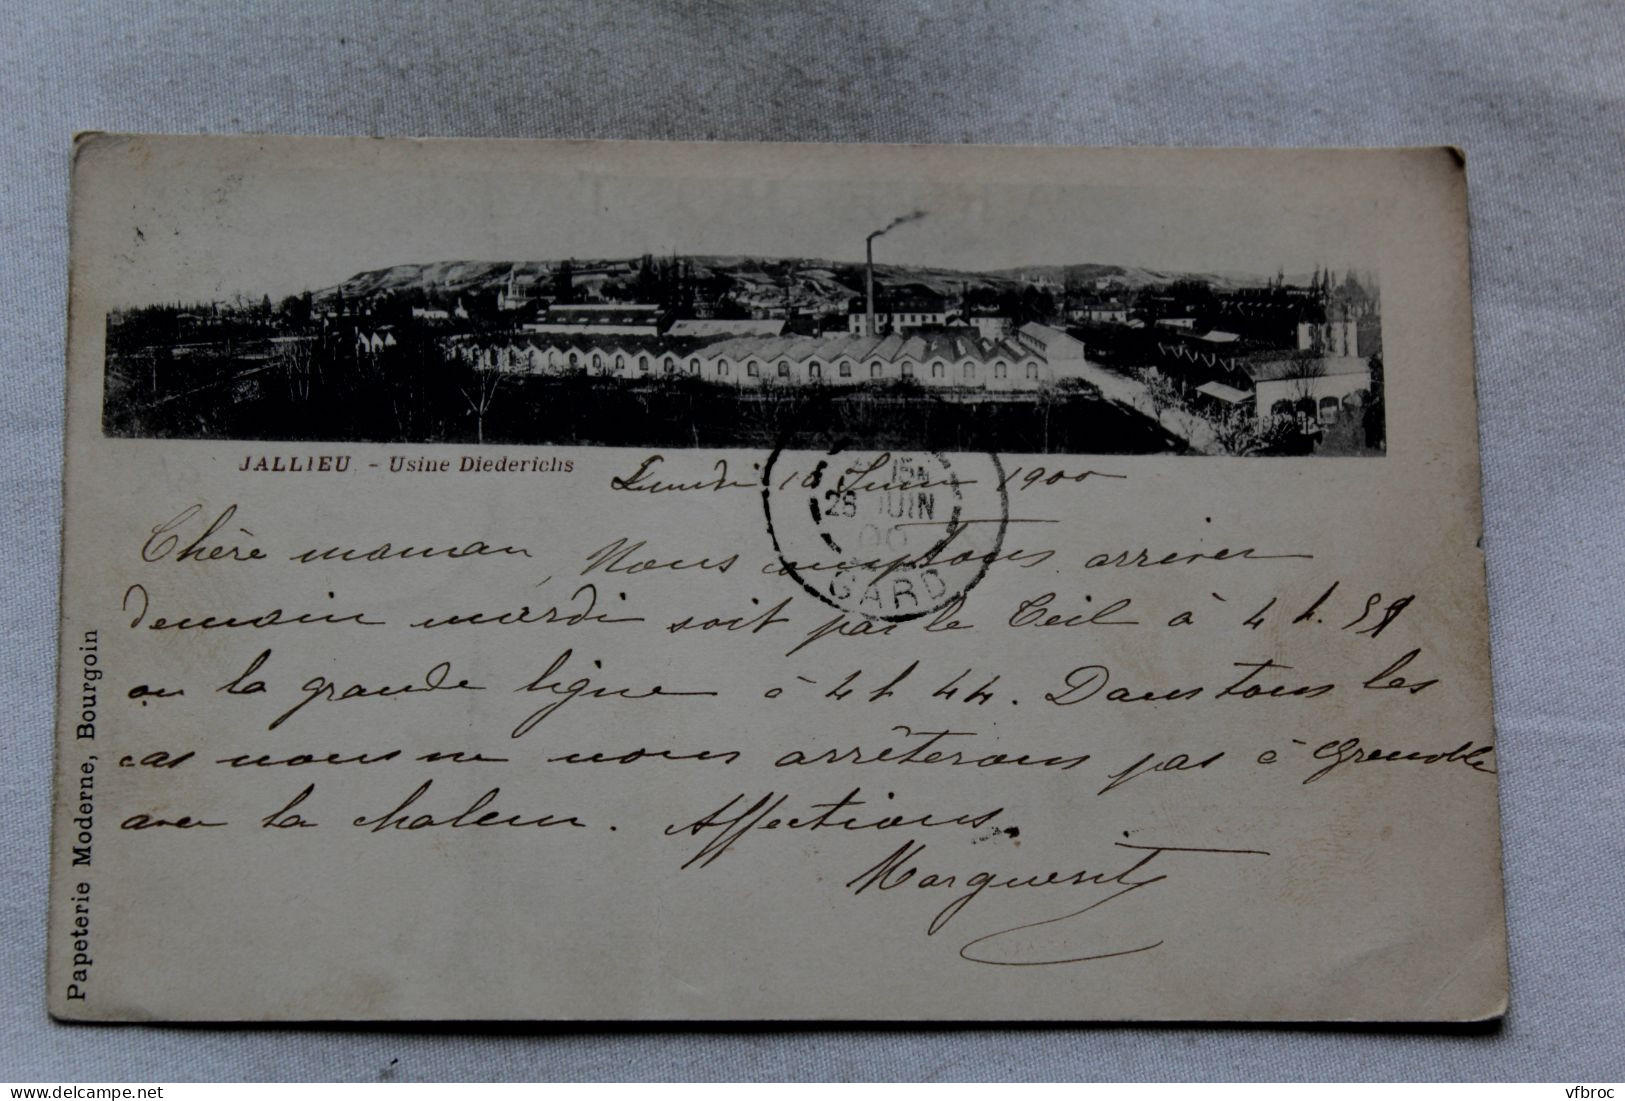 JALLIEU - Usine Diederichs
Lundi Juin 1900
15
28 JUIN
00
GARD
Chère maman, Nous comptons arriver
demain mardi soit par le Teil à 4 h. 59
ou la grande ligne à 4 h 44. Dans tous les
cas nous ne nous arrêterons pas à Grenoble
avec la chaleur. Affections.
Marguerite
Papeterie Moderne, Bourgoin
vfbroc